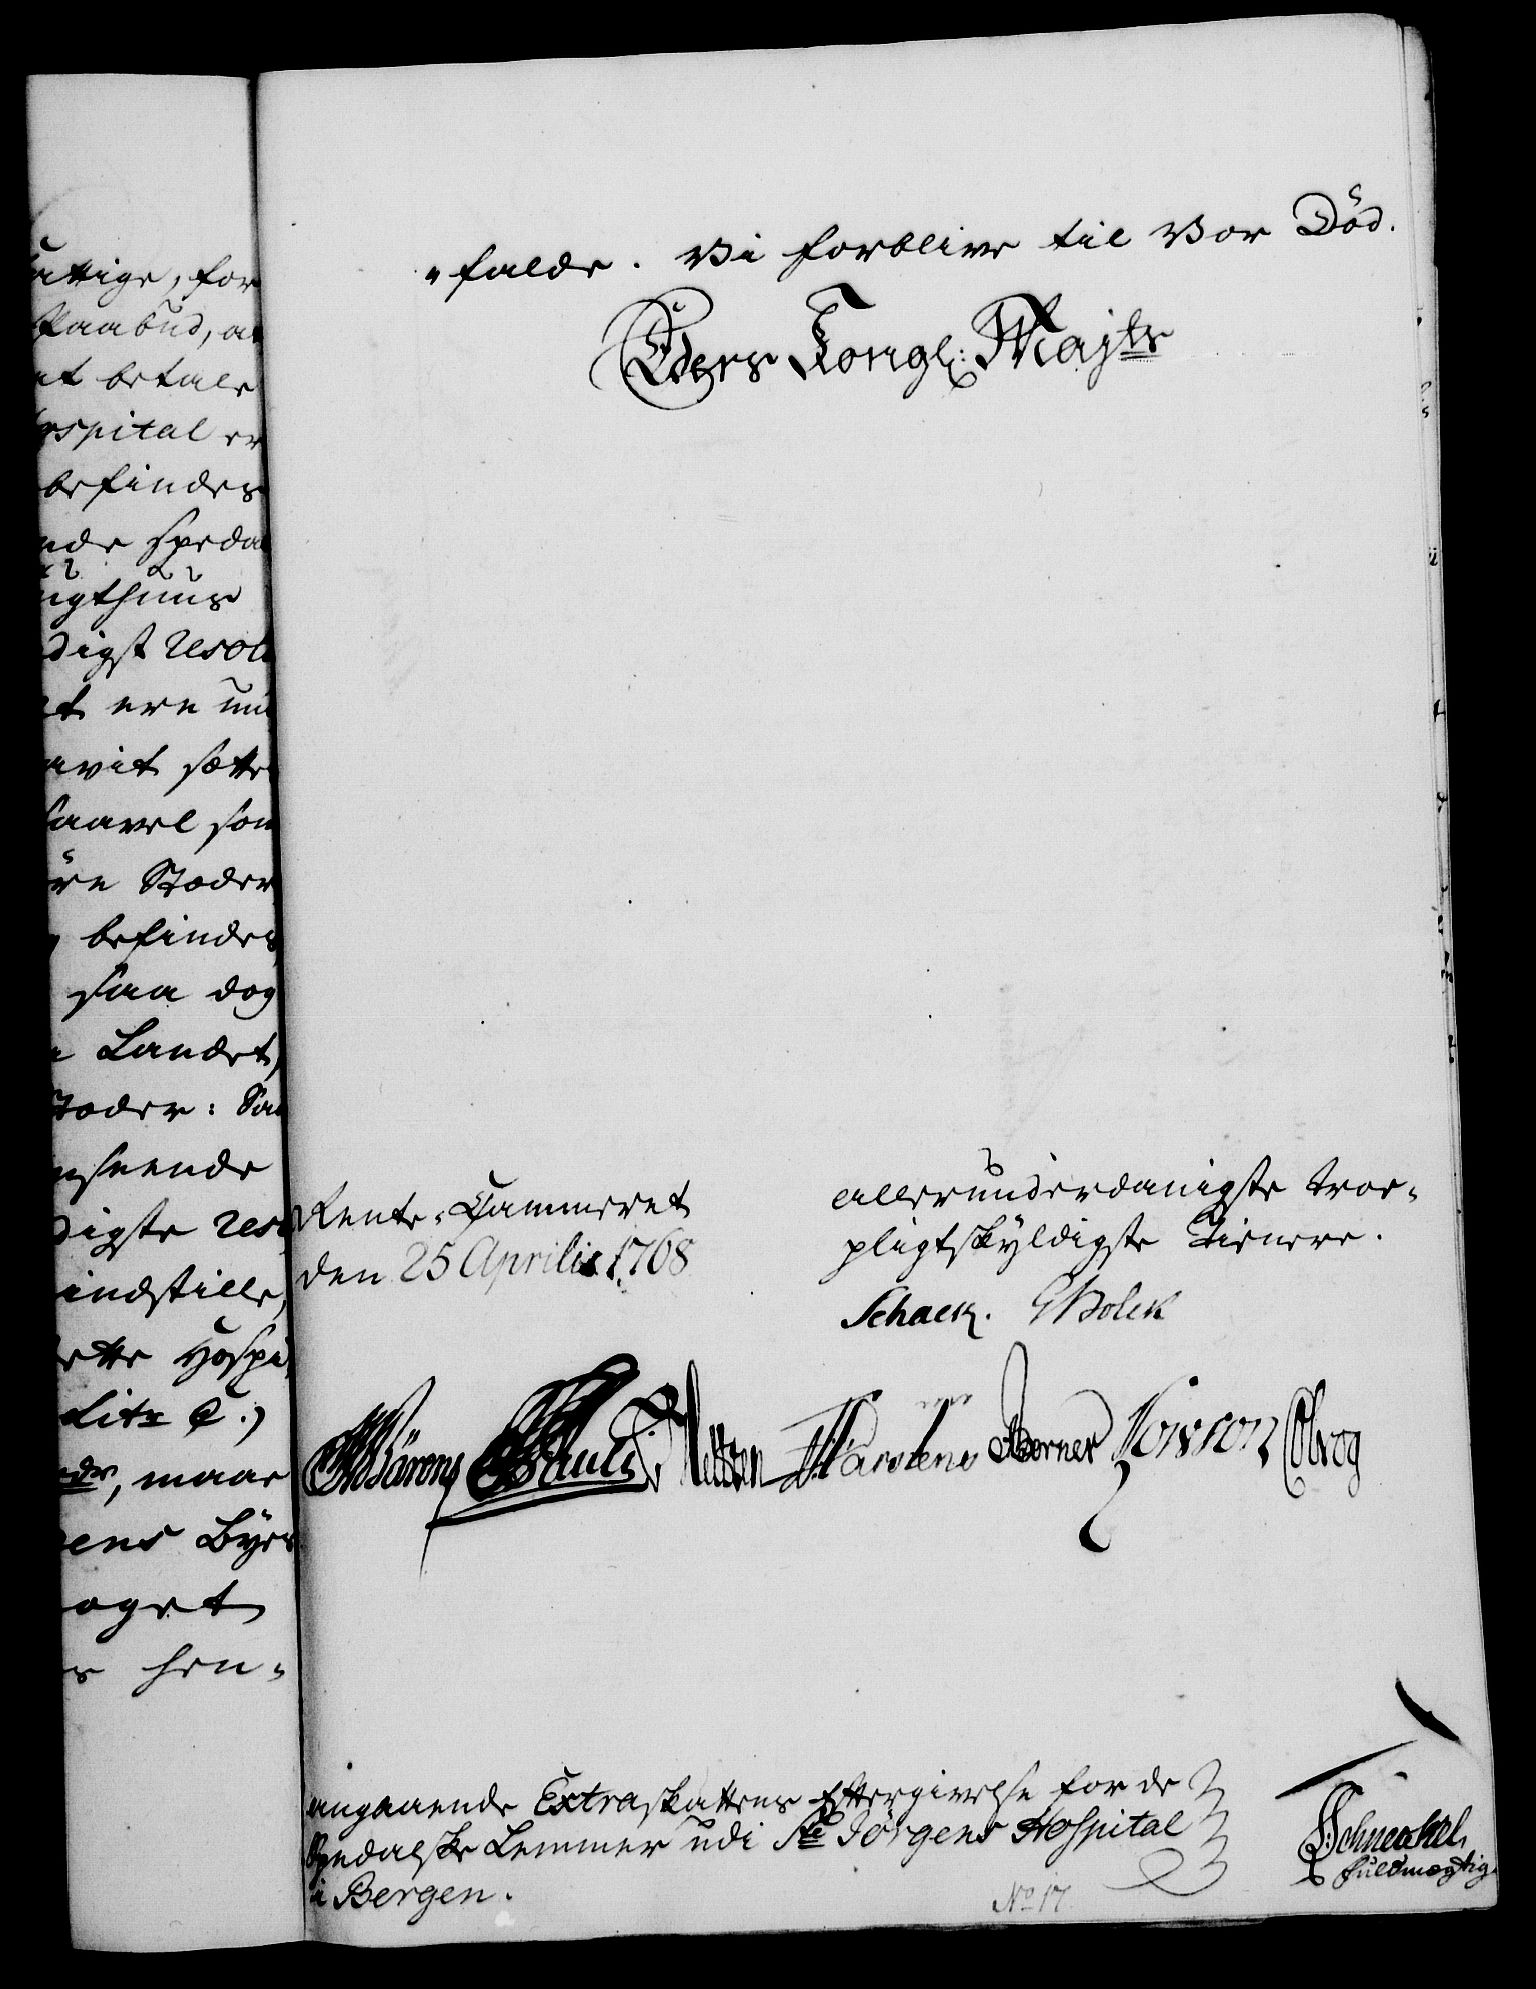 attige, for
Paabud, at
at betale
ospital er
befindes
nde Speda
ugthuus
digst resol
t ere un
avit sætte
saavel som
öre Stæder
befindes
saa dog
Landet,
Stæder: Sa
nseende
digste reso
indstille,
ette Hospi
Litr C.)
, maae
ens Byes
oget
hen-
"falde. Vi forblive til Vor Död.
Eders Kongl: Majts
Rente-Cammeret
den 25 Aprilis 1768
allerunderdanigste troe-
pligtskyldigste Tienere.
Schack. Holck
Bärens Pauli Carstens Berner Koivron Obrog
angaaende Extraskattens Eftergivelse for de
Spedalske Lemmer udi Ste Jörgens Hospital
i Bergen.
No 17
Schneekel
fuldmægtig